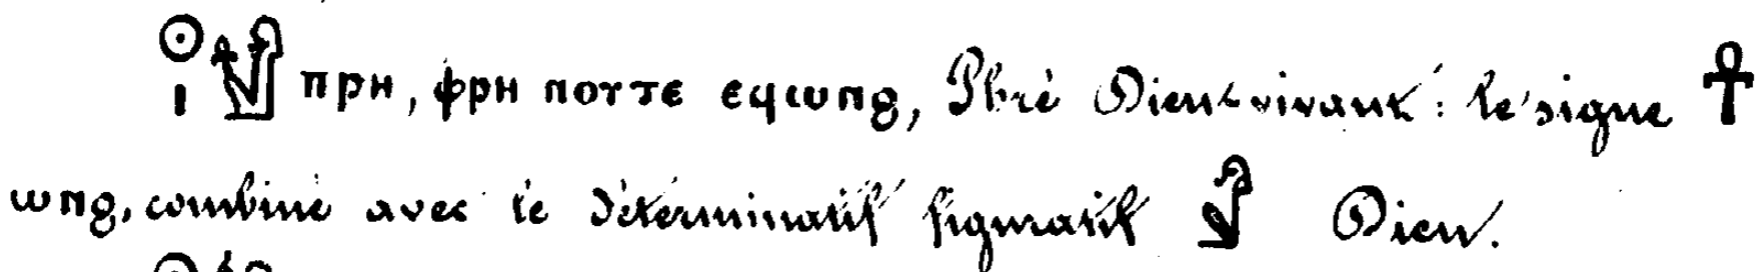 𓇳𓏤 ⲡⲣⲏ, ⲫⲣⲏ ⲛⲟⲩⲧⲉ ⲉϥⲱⲛϩ, Phrè Dieu vivant: le signe 𓋹
ⲱⲛϩ, combiné avec le déterminatif figuratif 𓁟 Dieu.